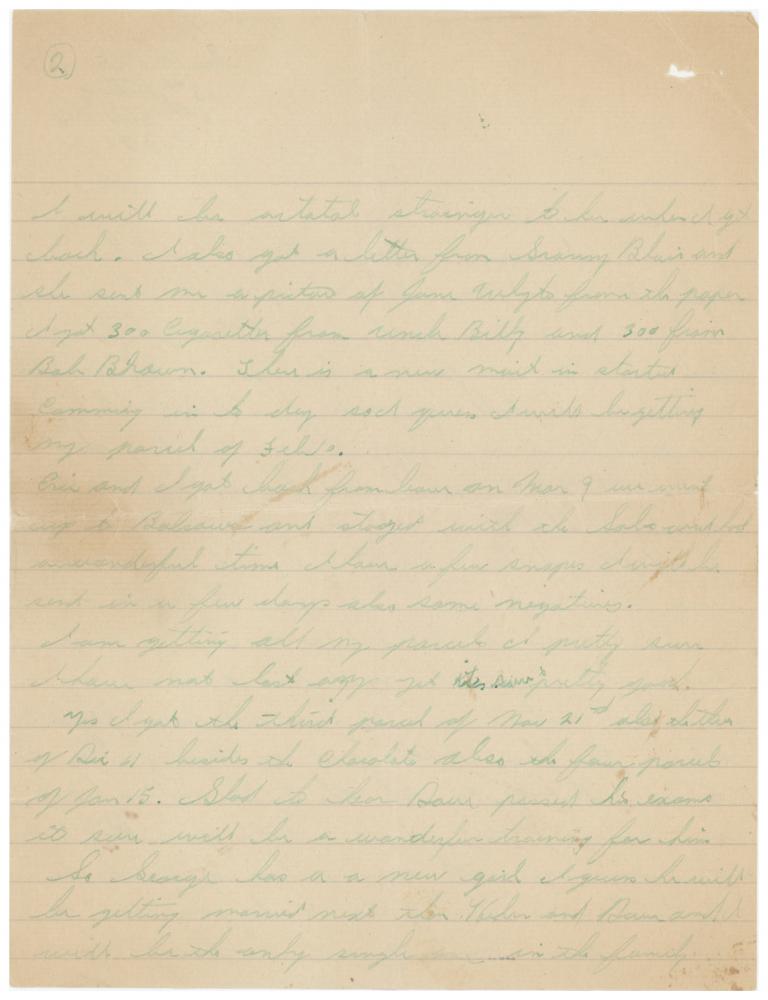 2
I will be a total stranger to her when I get
back. I also got a letter from Granny Blair and
she sent me a picture of Jane Whyto from the paper
I got 300 Cigarettes from uncle Billy and 300 from
Bob Brown. There is a new mail in started
Comming in to day so I guess I will be getting
my parcel of Feb 10.
Eric and I got back from leave on Mar 9 we went
up to and stayed with the and had
a wonderful time I have a few snapes I will be
sent in a few days also some negatives.
I am getting all my parcels I pretty sure
I have not lost any yet its sure pretty good.
Yes I got the third parcel of Nov 21st also the
of Dec 11 besides the Chocolate also the four parcels
of Jan 15. Glad to hear Dave passed his exams
it sure will be a wonderfur training for him
So George has a a new girl I guess he will
be getting married next then Helen and Dave and I
will be the only single in the family.